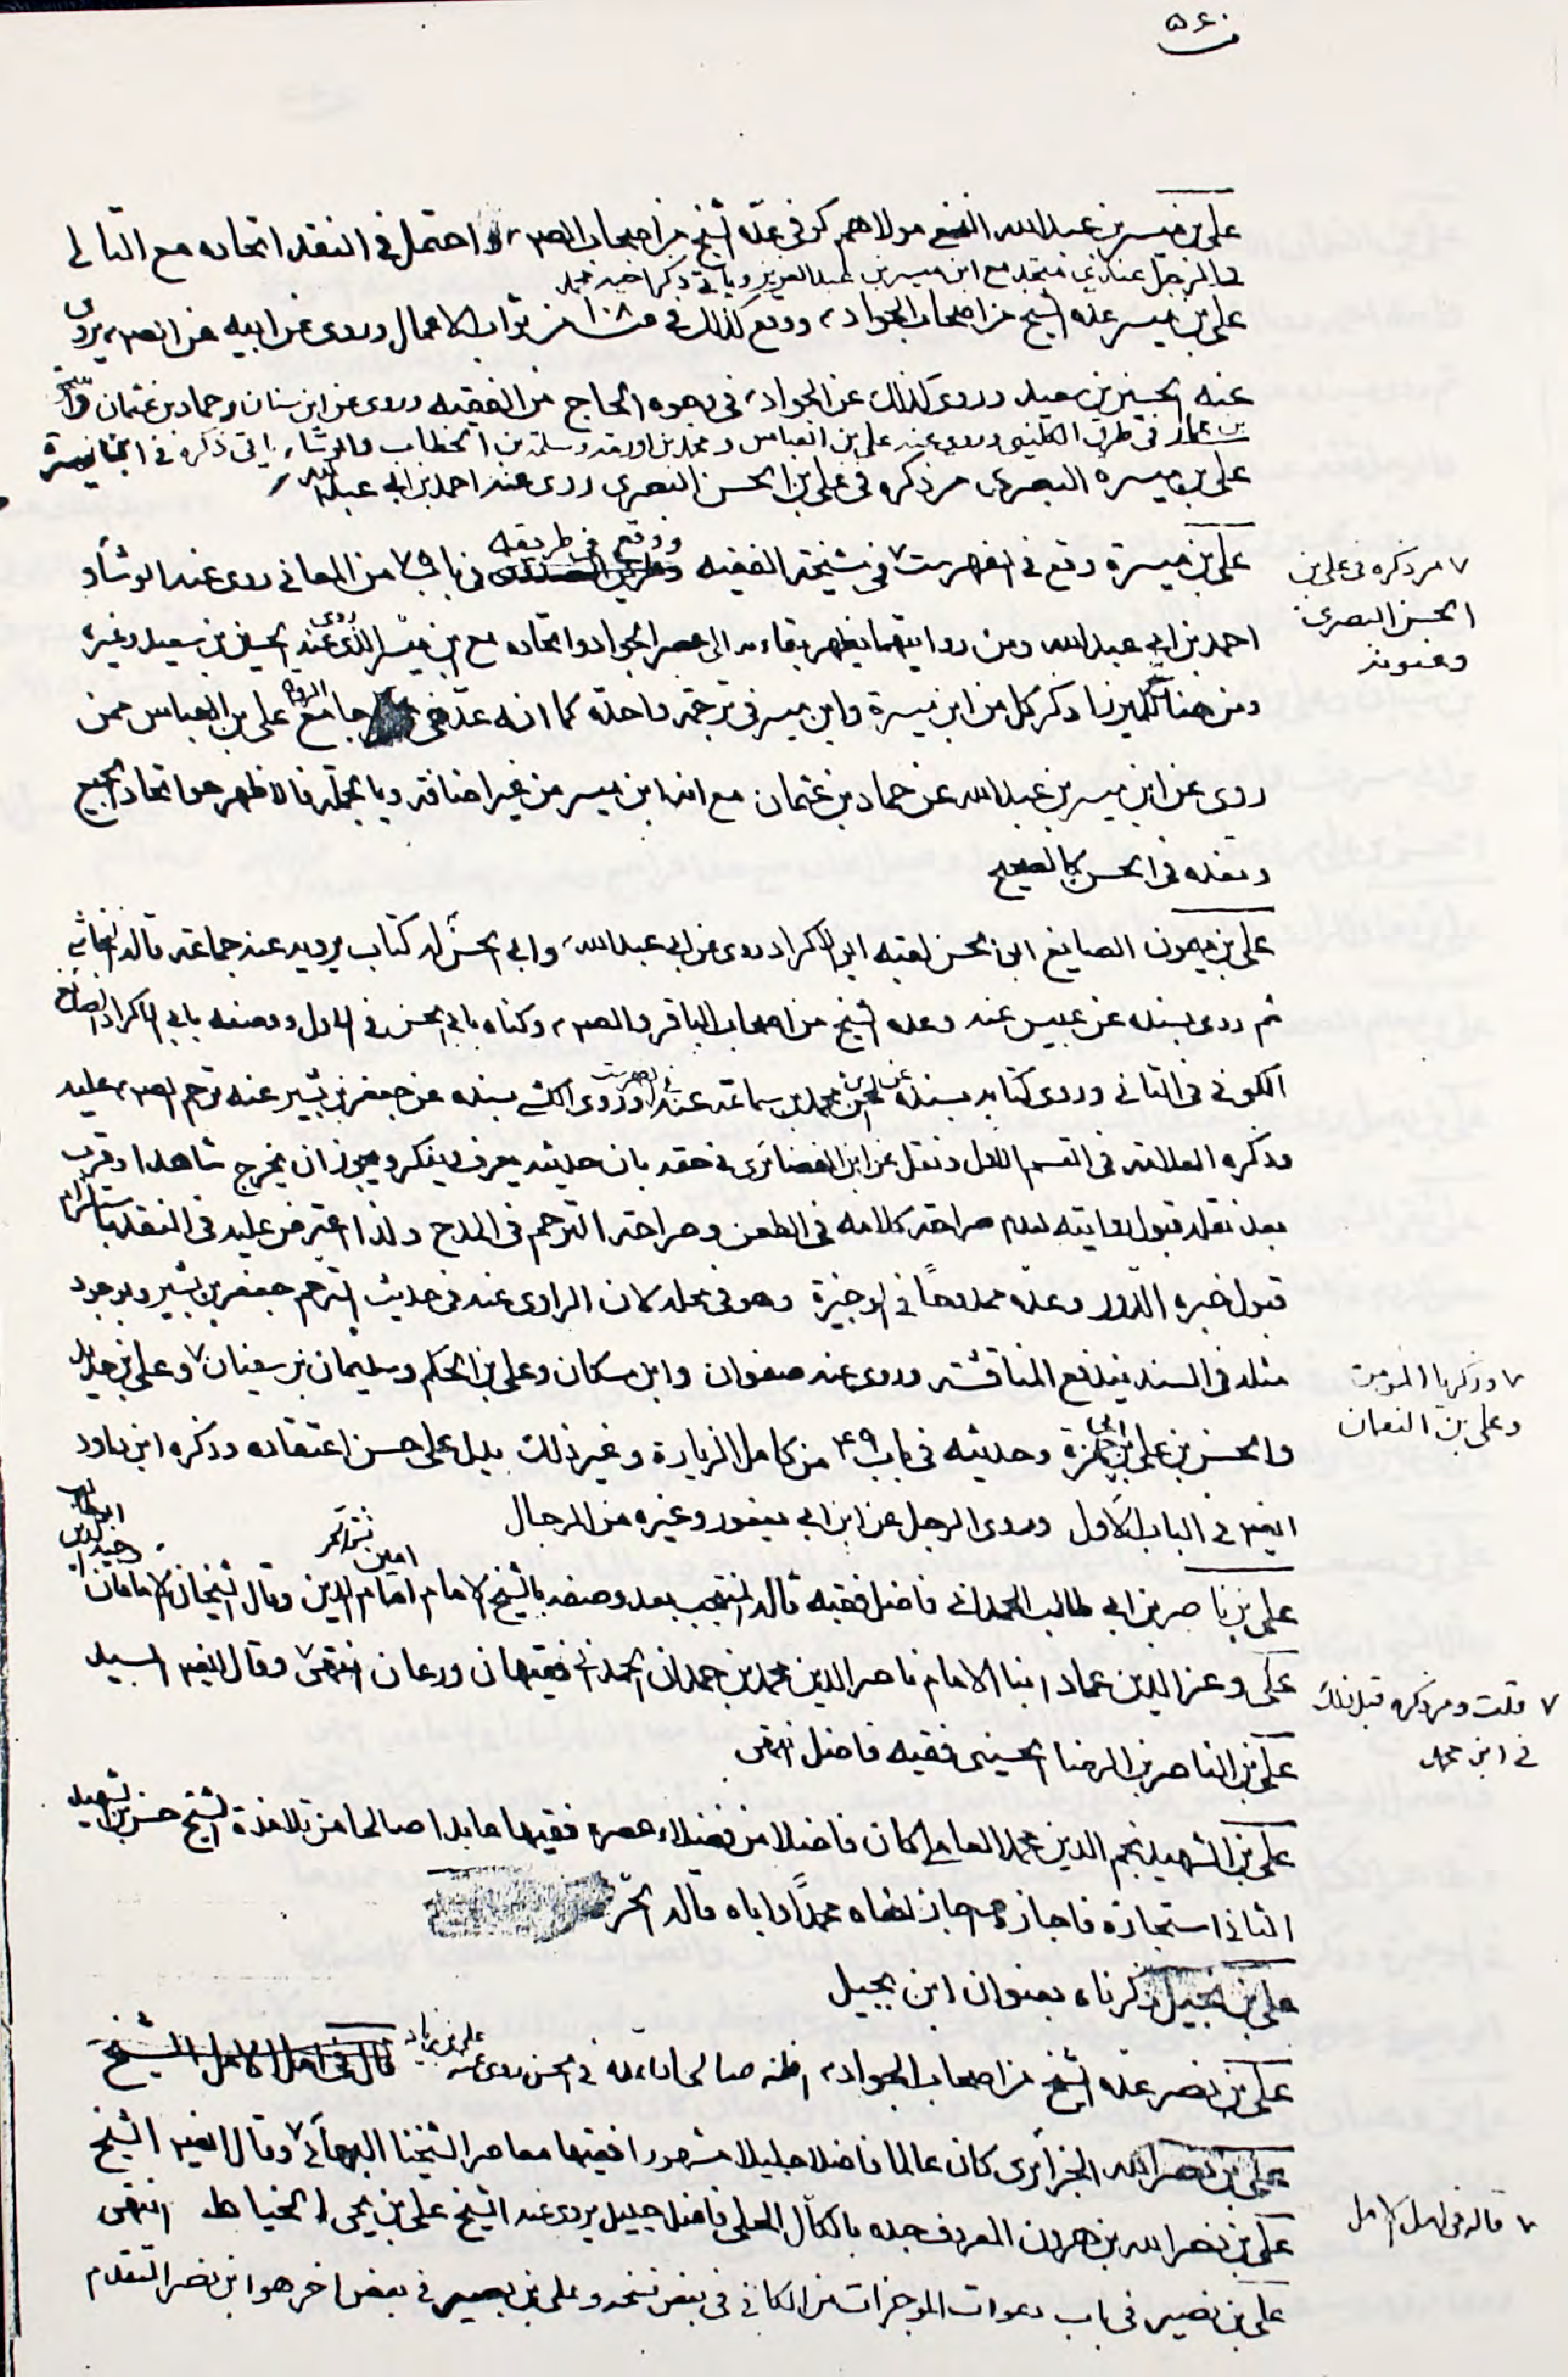 ٥٦٠
علي بن ميسر بن عبدالله النخعي مولاهم كوفي عدّه الشيخ من اصحاب الصم واحتمل في النقد اتحاده مع التالي
والرجل عندي متحد مع ابن ميسر بن عبدالعزيز وياتي ذكر اخيه محمد
علي بن ميسر عده الشيخ من اصحاب الجواد ووقع كذلك في من ثواب الاعمال وروى عن ابيه عن الصم يروى
عنه الحسين بن سعيد وروى كذلك عن الجواد في وجوه الحاج من الفقيه وروى عن ابن سنان وحماد بن عثمان
بن عمار في طرق الكليني وروى عنه علي بن العباس ومحمد بن اورمه وسلمة بن الخطاب والوشاء ياتي ذكره في ابن ميسرة
علي بن ميسره البصرى مر ذكره في علي بن الحسن البصرى روى عنه احمد بن ابي عبدالله
علي بن ميسرة وقع في الفهرست ٧ في مشيخة الفقيه ووقع في طريقه في باب ٧٩ من المعاني روى عنه الوشاء و
٧ مر ذكره في علي بن
الحسن البصرى
وعنونه
احمد بن ابي عبدالله ومن روايتهما يظهر بقاءه الى عصر الجواد واتحاده مع ابن ميسر الذى روى عنه الحسين بن سعيد وغيره
ومن هنا ذكر كل من ابن ميسرة وابن ميسر في ترجمة واحدة كما انه عد في جامع الرواة علي بن العباس ممن
روى عن ابن ميسر بن عبدالله عن حماد بن عثمان مع انه ابن ميسر من غير اضافة وبالجملة فالاظهر هو اتحاد الجميع
ونعده في الحسن كالصحيح
علي بن ميمون الصايغ ابو الحسن لقبه ابو الاكراد روى عن ابي عبدالله وابي الحسن له كتاب يرويه عنه جماعة قاله النجاشي
ثم روى بسنده عن عبيس عنه وعده الشيخ من اصحاب الباقر والصم وكناه بابي الحسن في الاول ووصفه بابي الاكراد الصايغ
الكوفي في الثاني وروى كتابه بسنده عن الحسن بن محمد بن سماعة عنه في الفهرست وروى الكشي بسنده عن جعفر بن بشير عنه ترحم الصم عليه
وذكره العلامة في القسم الاول ونقل عن ابن الغضائرى في حقه بان حديثه يعرف وينكر ويجوز ان يخرج شاهدا وقرب
بعد نقله قبول روايته لعدم صراحة كلامه في الطعن وصراحة الترحم في المدح ولذا اعترض عليه في النقد باستلزام
قبول خبره الدور وعده ممدوحاً في الوجيزة وهو في محله لان الراوى عنه في حديث الترحم جعفر بن بشير وبوجود
مثله في السند يندفع المناقشة وروى عنه صفوان وابن مسكان وعلي بن الحكم وسليمان بن سفيان ٧ وعلي بن حديد
٧ وزكريا المؤمن
وعلي بن النعمان
والحسن بن علي بن ابي حمزة وحديثه في باب ٤٩ من كامل الزيارة وغير ذلك يدل على حسن اعتقاده وذكره ابن داود
ايضا في الباب الاول وروى الرجل عن ابن ابي يعفور وغيره من الرجال
علي بن ناصر بن ابي طالب الحمداني فاضل فقيه قاله المنتجب بعد وصفه بالشيخ الامام امين الدين وقال الشيخان الامامان
علي وعز الدين عماد ابنا الامام ناصر الدين محمد بن حمدان الحمداني فقيهان ورعان انتهى ٧ وقال ايضا السيد
٧ قلت ومر ذكره قبل ذلك
في ابن محمد
علي بن الناصر بن الرضا الحسيني فقيه فاضل انتهى
علي بن الشهيد نجم الدين محمد العاملي كان فاضلا من فضلاء عصره فقيها عابدا صالحا من تلامذة الشيخ حسن بن الشهيد
الثاني استجازه فاجازه محمداً واياه قاله الحر
علي بن بجيل ذكرناه بعنوان ابن بجيل
علي بن نصر عده الشيخ من اصحاب الجواد اظنه صالحا في الحسن روى عنه علي بن زياد قال في امل الامل الشيخ
علي بن نصرالله الجزائرى كان عالما فاضلا جليلا مشهورا فقيها معاصرا لشيخنا البهائي ٧ وقال ايضا الشيخ
٧ قاله في امل الامل
علي بن نصرالله بن هرون المعروف جده بالكال الحلي فاضل جليل يروى عنه الشيخ علي بن يحيى الخياط انتهى
علي بن نصير في باب دعوات الموجزات من الكافي في بعض نسخه وعلي بن بصير في بعض اخر هو ابن نصر المتقدم